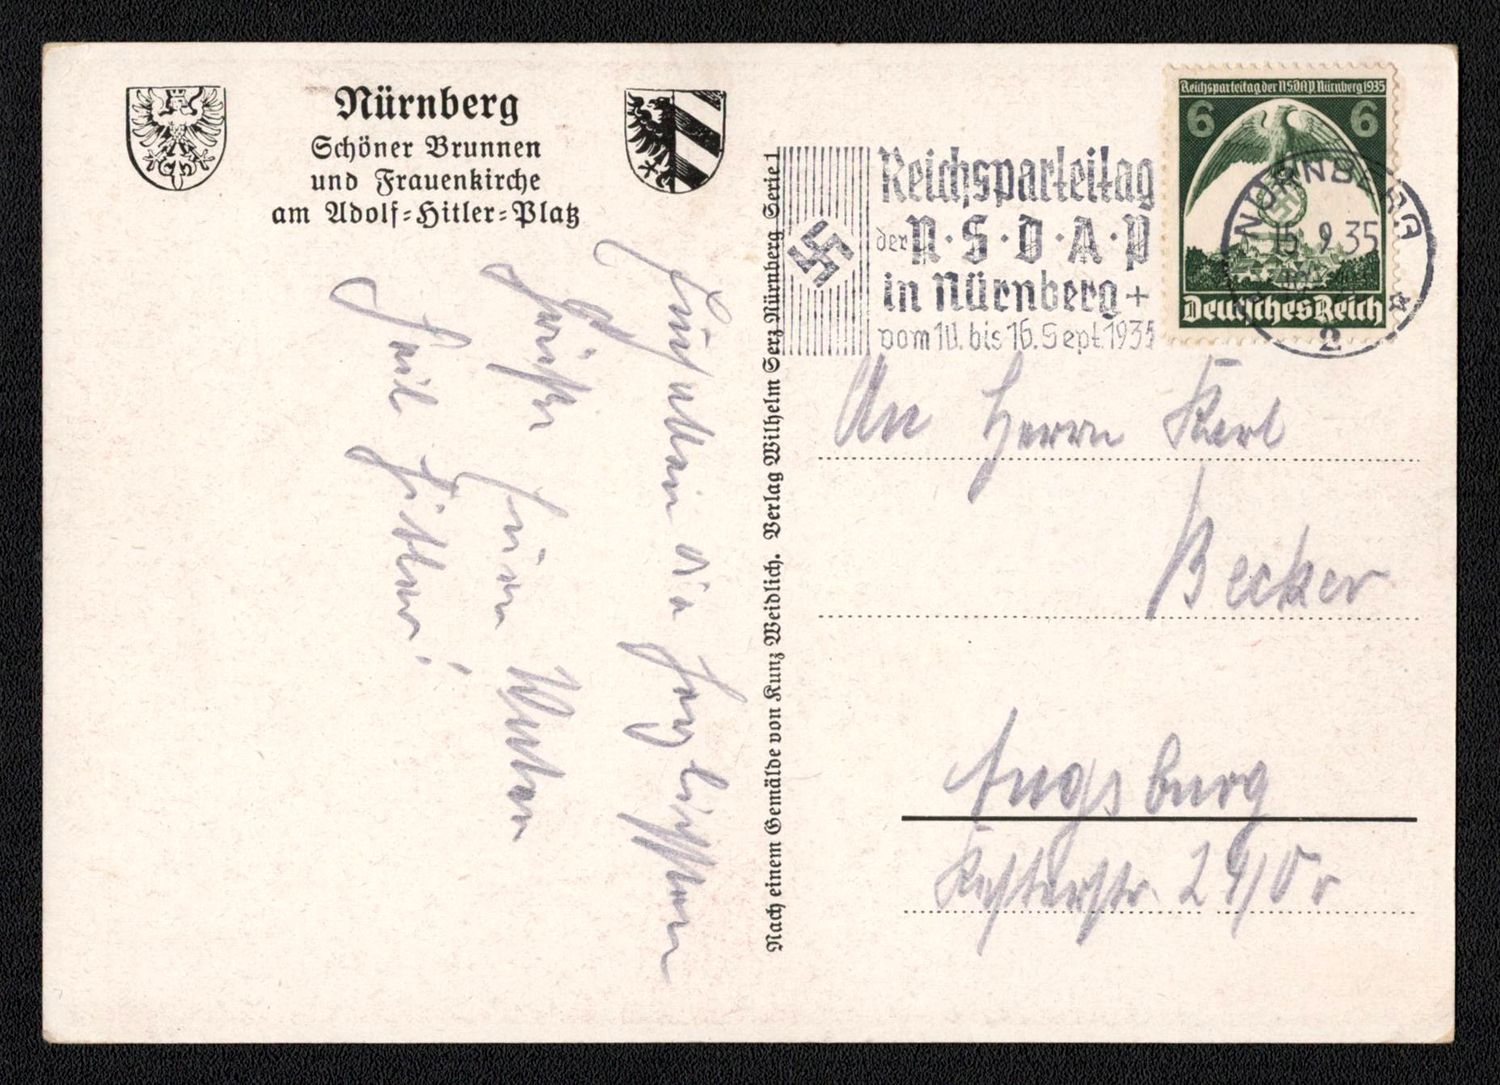 Nürnberg
Schöner Brunnen
und Frauenkirche
am Adolf=Hitler=Platz
die herzlichsten
Grüße
Heil Hitler!
Nach einem Gemälde von Kunz Weidlich. Verlag Wilhelm Serz Nürnberg Serie 1
Reichsparteitag
der N·S·D·A·P
in Nürnberg +
vom 10. bis 16. Sept. 1935
Reichsparteitag der NSDAP Nürnberg 1935
6 6
Deutsches Reich
NÜRNBERG
15.9.35
2
An Herrn Karl
Becker
Augsburg